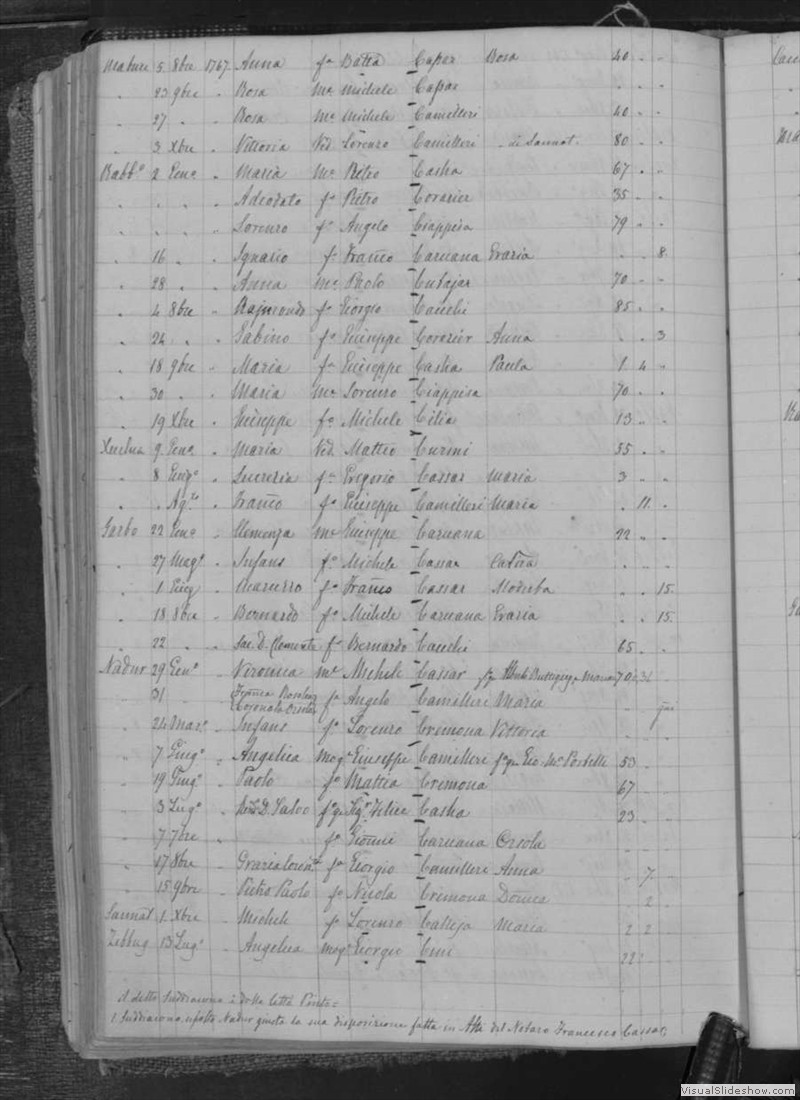 Matrice 5 8bre 1767 Anna fa Batta Capar Rosa 40 " "
" 23 9bre " Rosa Me Michele Capar
" 27 " " Rosa Me Michele Camilleri 40 " "
" 3 Xbre " Vittoria Ved. Lorenzo Camilleri di Sannat. 80 " "
Rabbo 2 Geno " Maria Me Pietro Casha 67 " "
" " " " Adeodato fo Pietro Corazier 35 " "
" " " " Lorenzo fo Angelo Ciappisa 79 " "
" 16 " " Ignazio fo Franco Caruana Grazia " " 8
" 28 " " Anna Me Paolo Cutajar 70 " "
" 4 8bre " Rajmondo fo Giorgio Cauchi 85 " "
" 24 " " Sabino fo Giuseppe Corazier Anna " " 3
" 18 9bre " Maria fa Giuseppe Casha Paula 1 4 "
" 30 " " Maria Me Lorenzo Ciappisa 70 " "
" 19 Xbre " Giuseppe fo Michele Cilia 13 " "
Xeuchia 9 Geno " Maria Ved. Matteo Curmi 55 " "
" 8 Giugo " Lucrezia fa Gregorio Cassar Maria 3 " "
" " Agto " Franco fo Giuseppe Camilleri Maria " 11 "
Garbo 22 Geno " Clemenza Me Giuseppe Caruana 22 " "
" 27 Mago " Infans fo Michele Cassar Catna " " "
" 1 Giug " fo Franco Cassar Modesta " " 15
" 18 8bre " Bernardo fo Michele Caruana Grazia " " 15
" 22 " " Sac. D. Clemente fo Bernardo Cauchi 65 " "
Nadur 29 Geno " Veronica Me Michele Cassar Buttigieg e Maria 70
" 31 fa Angelo Camilleri Maria
" 24 Mar.o " Infans fo Lorenzo Cremona Vittoria
" 7 Giugo " Angelica mogo Giuseppe Camilleri Gio. Me Portelli 53
" 19 Giugo " Paolo fo Mattia Cremona 67
" 3 Lugo " D. Salvo Felice Casha 23
" 7 7bre fo Gionni Caruana Orsola
" 17 8bre " fa Giorgio Camilleri Anna " 7
" 15 9bre " Pietro Paolo fo Nicola Cremona Domca " 2
Sannat 1 Xbre " Michele fo Lorenzo Calleja Maria 2 2
Zebbug 13 Lugo " Angelica mogo Giorgio Cini 22
il detto Suddiacono è della Città
Suddiacono Nadur giusto la sua disposizione fatta in Atti del Notaro Francesco Cassar.
VisualSlideshow.com